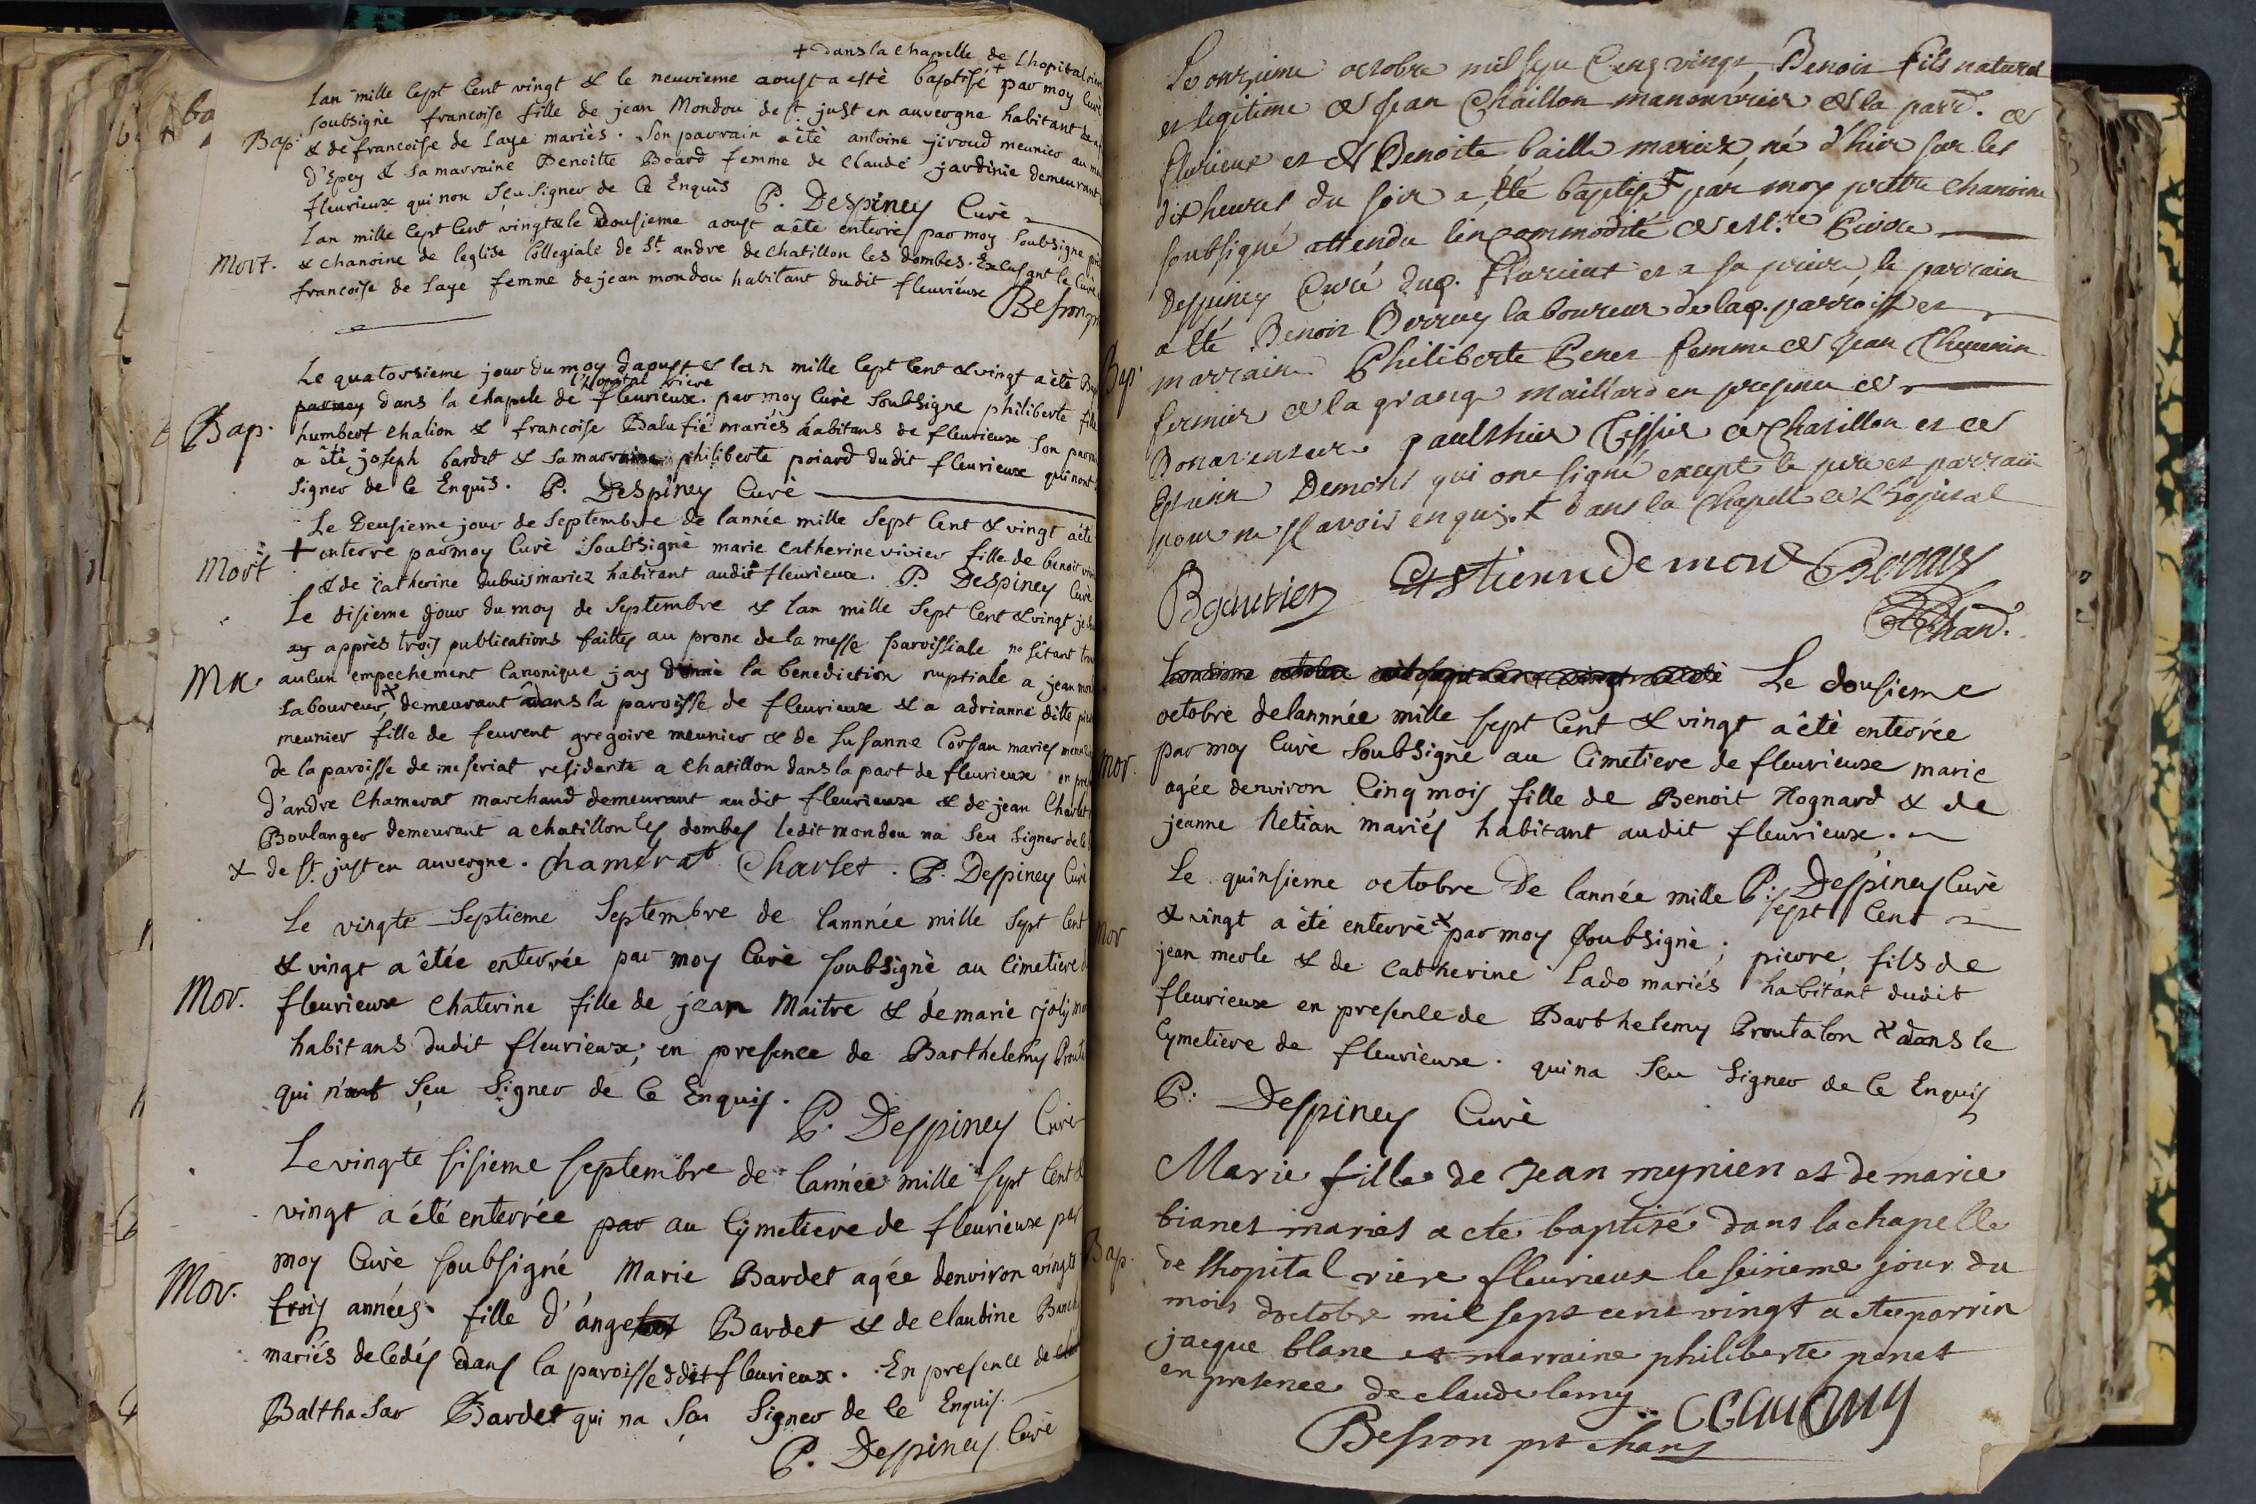 + dans la chapelle de lhopital
Lan mille sept cent vingt & le neuvieme aoust a estè baptisé + par moy Curé
soubsigne francoise fille de jean Mondou de st. just en auvergne habitant de
Bap. & de francoise de Laye mariès. son parrain a êtè antoine jiroud meunier au
d'Epey & sa marraine Benoitte Board femme de Claude jardinie demeurant
fleurieux qui non seu signer de Ce Enquis P. Despiney Curè
Lan mille sept Cent vingt & le dousieme aoust a êtè enterre par moy soubsigne
Mort. & chanoine de leglise Collegiale de St. andre de chatillon les dombes. Excusant le Curé
francoise de Laye femme de jean mondou habitant dudit fleurieux
Besson
Le quatorsieme jour du moy daoust & lan mille sept Cent & vingt a êtè
parmoy dans la chapele de l'Hopital riere fleurieux. par moy Curè soubsigne philiberte fille
Bap. humbert chalion & francoise Balufie mariès habitans de fleurieux son
a êtè joseph bardet & sa marraine philiberte poiard dudit fleurieux qui nont
signer de Ce Enquis. P. Despiney Curè
Le Deusieme jour de septembre de lannée mille sept Cent & vingt a êtè
Mort + enterre par moy Curè soubsignè marie catherine vivier fille de benoit
& de catherine dubuis mariez habitant audit fleurieux. P. Despiney Curè
Le disieme jour du moy de septembre & lan mille sept Cent & vingt je
ay apprès trois publications faittes au prone de la messe paroissiale ne sêtant
Ma. aucun empechement Canonique jay donné la benediction nuptiale a jean
Laboureur x demeurant dans la paroisse de fleurieux & a adrianne ditte
meunier fille de feuvent gregoire meunier & de susanne Corsan maries
de la paroisse de meseriat residente a chatillon dans la part de fleurieux en
d'andre Chamerat marchand demeurant au dit fleurieux & de jean Charlet
Boulanger demeurant a chatillon les dombes ledit mondou na seu signer de
x de st. just en auvergne. Chamérat Charlet. P. Despiney Curè
Le vingte septieme septembre de lannnée mille sept Cent
& vingt a êtée enterrée par moy Curè soubsignè au Cimetiere
Mor. fleurieux Chaterine fille de jean Maitre & de marie joly
habitans dudit fleurieux; en presence de Barthelemy
qui n'ont seu signer de Ce Enquis.
P. Despiney Curè
Le vingte sisieme septembre de lannée mille sept Cent &
vingt a été enterrée par au Cymetiere de fleurieux par
moy Curè soubsigné Marie Bardet agée denviron vingte
Mor. trois années. fille d'ange Bardet & de Claudine
mariés decedés dans la paroisse ddit fleurieux. En presence de
Balthasar Bardet qui na seu signer de Ce Enquis.
P. Despiney Curè
Le onzieme octobre mil sept Cens vingt, Benoit fils naturel
et legitime de Jean Chaillon manouvrier de la parr. de
fleurieux et de Benoite baille mariez, né d'hier sur les
dix heures du soir a été baptisé + par moy pretre chanoine
soubsigné attendu lincommodité de
Despiney Curé dud. fleurieux et a sa priere, le parrain
a été Benoit Berruy laboureur de lad. parroisse et
Bap. marraine Philiberte Penet femme de Jean Chevenin
fermier de la grange maillard en presence de
Bonaventure Gaulthier Tissier de Chatillon et de
Estienne Demont qui ont signé excepté le pere et parrain
pour ne sçavoir enquis. + dans la Chapelle de l'hopital
Bgautier Estienne De mont
Chan.
Le dousieme
octobre de lannnée mille sept Cent & vingt a êtè enterrée
Mor. par moy Curè soubsignè au Cimetiere de fleurieux marie
agée denviron Cinq mois fille de Benoit Nognard & de
jeanne Retian mariés habitant audit fleurieux.
P. Despiney Curè
Le quinsieme octobre De lannée mille sept Cent
Mor & vingt a été enterrè x par moy soubsignè; pierre fils de
jean merle & de Catherine Lado mariés habitant dudit
fleurieux en presence de Barthelemy Proutalon x dans le
Cymetiere de fleurieux. qui na seu signer de Ce Enquis
P. Despiney Curè
Marie fille de Jean mynien et de marie
bianet mariés a ete baptisé dans la chapelle
Bap. de lhopital riere fleurieux le seizieme jour du
mois doctobre mil sept cent vingt a ete parrin
jacque blanc et marraine philiberte penet
en presence de claude lemy
Besson prt chan